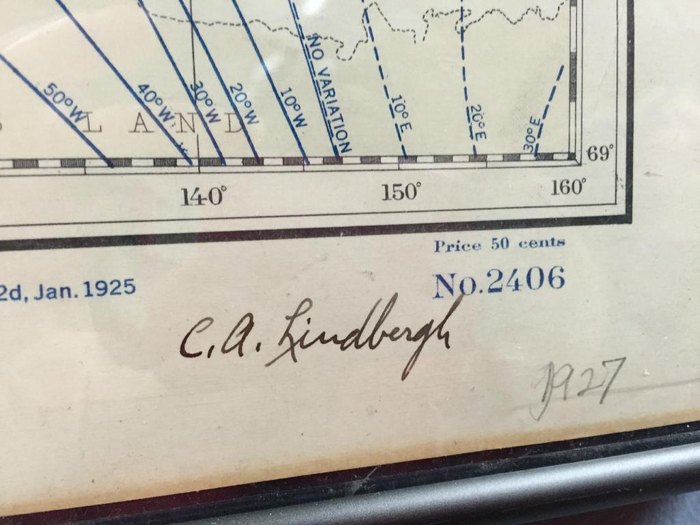 50°W 40°W 30°W 20°W 10°W NO VARIATION 10°E 20°E 30°E
LAND
69°
140° 150° 160°
Price 50 cents
2d, Jan. 1925 No. 2406
C. A. Lindbergh
1927